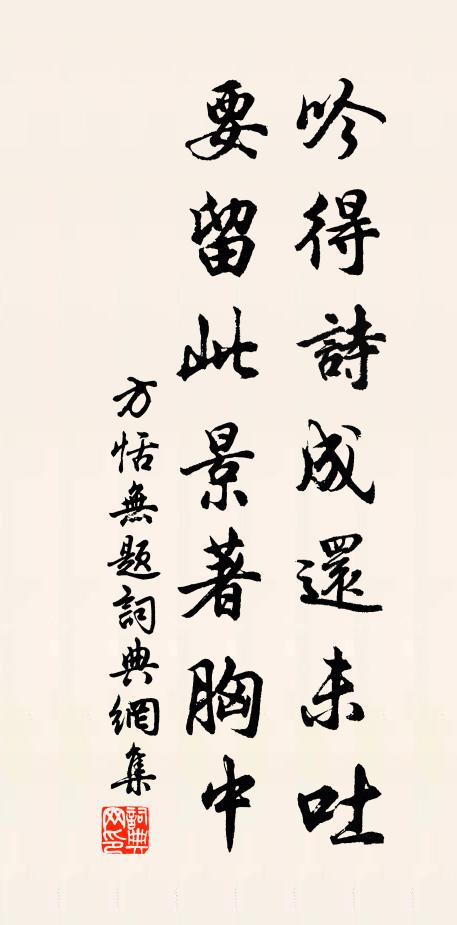 吟得詩成還未吐
要留此景著胸中
方恬無題詞典網集
詞典网印